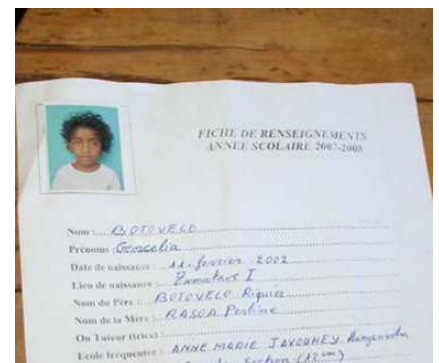 FICHE DE RENSEIGNEMENTS
ANNEE SCOLAIRE 2007-2008
Nom : BOTOVELO
Prénoms :
Date de naissance : 11. fevrier 2002
Lieu de naissance : Tamatave I
Nom du Père : BOTOVELO Riquier
Nom de la Mère : RASOA Perline
Ou Tuteur (trice)
Ecole frequentée : ANNE MARIE JAVOUHEY
Section